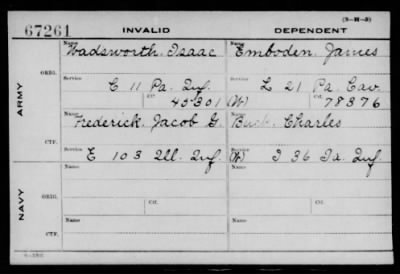 (3-H-3)
67261 INVALID DEPENDENT
Name Name
Wadsworth, Isaac Emboden, James
ORIG.
Service Service
C 11 Pa. Inf. L 21 Pa. Cav.
ARMY
Ctf. 45301 (W) Ctf. 78376
Name Name
Frederick, Jacob G. Charles
CTF.
Service Service
E 103 Ill. Inf. (W) I 36 Inf.
Name Name
ORIG. Ctf. Ctf.
NAVY
Name Name
CTF.